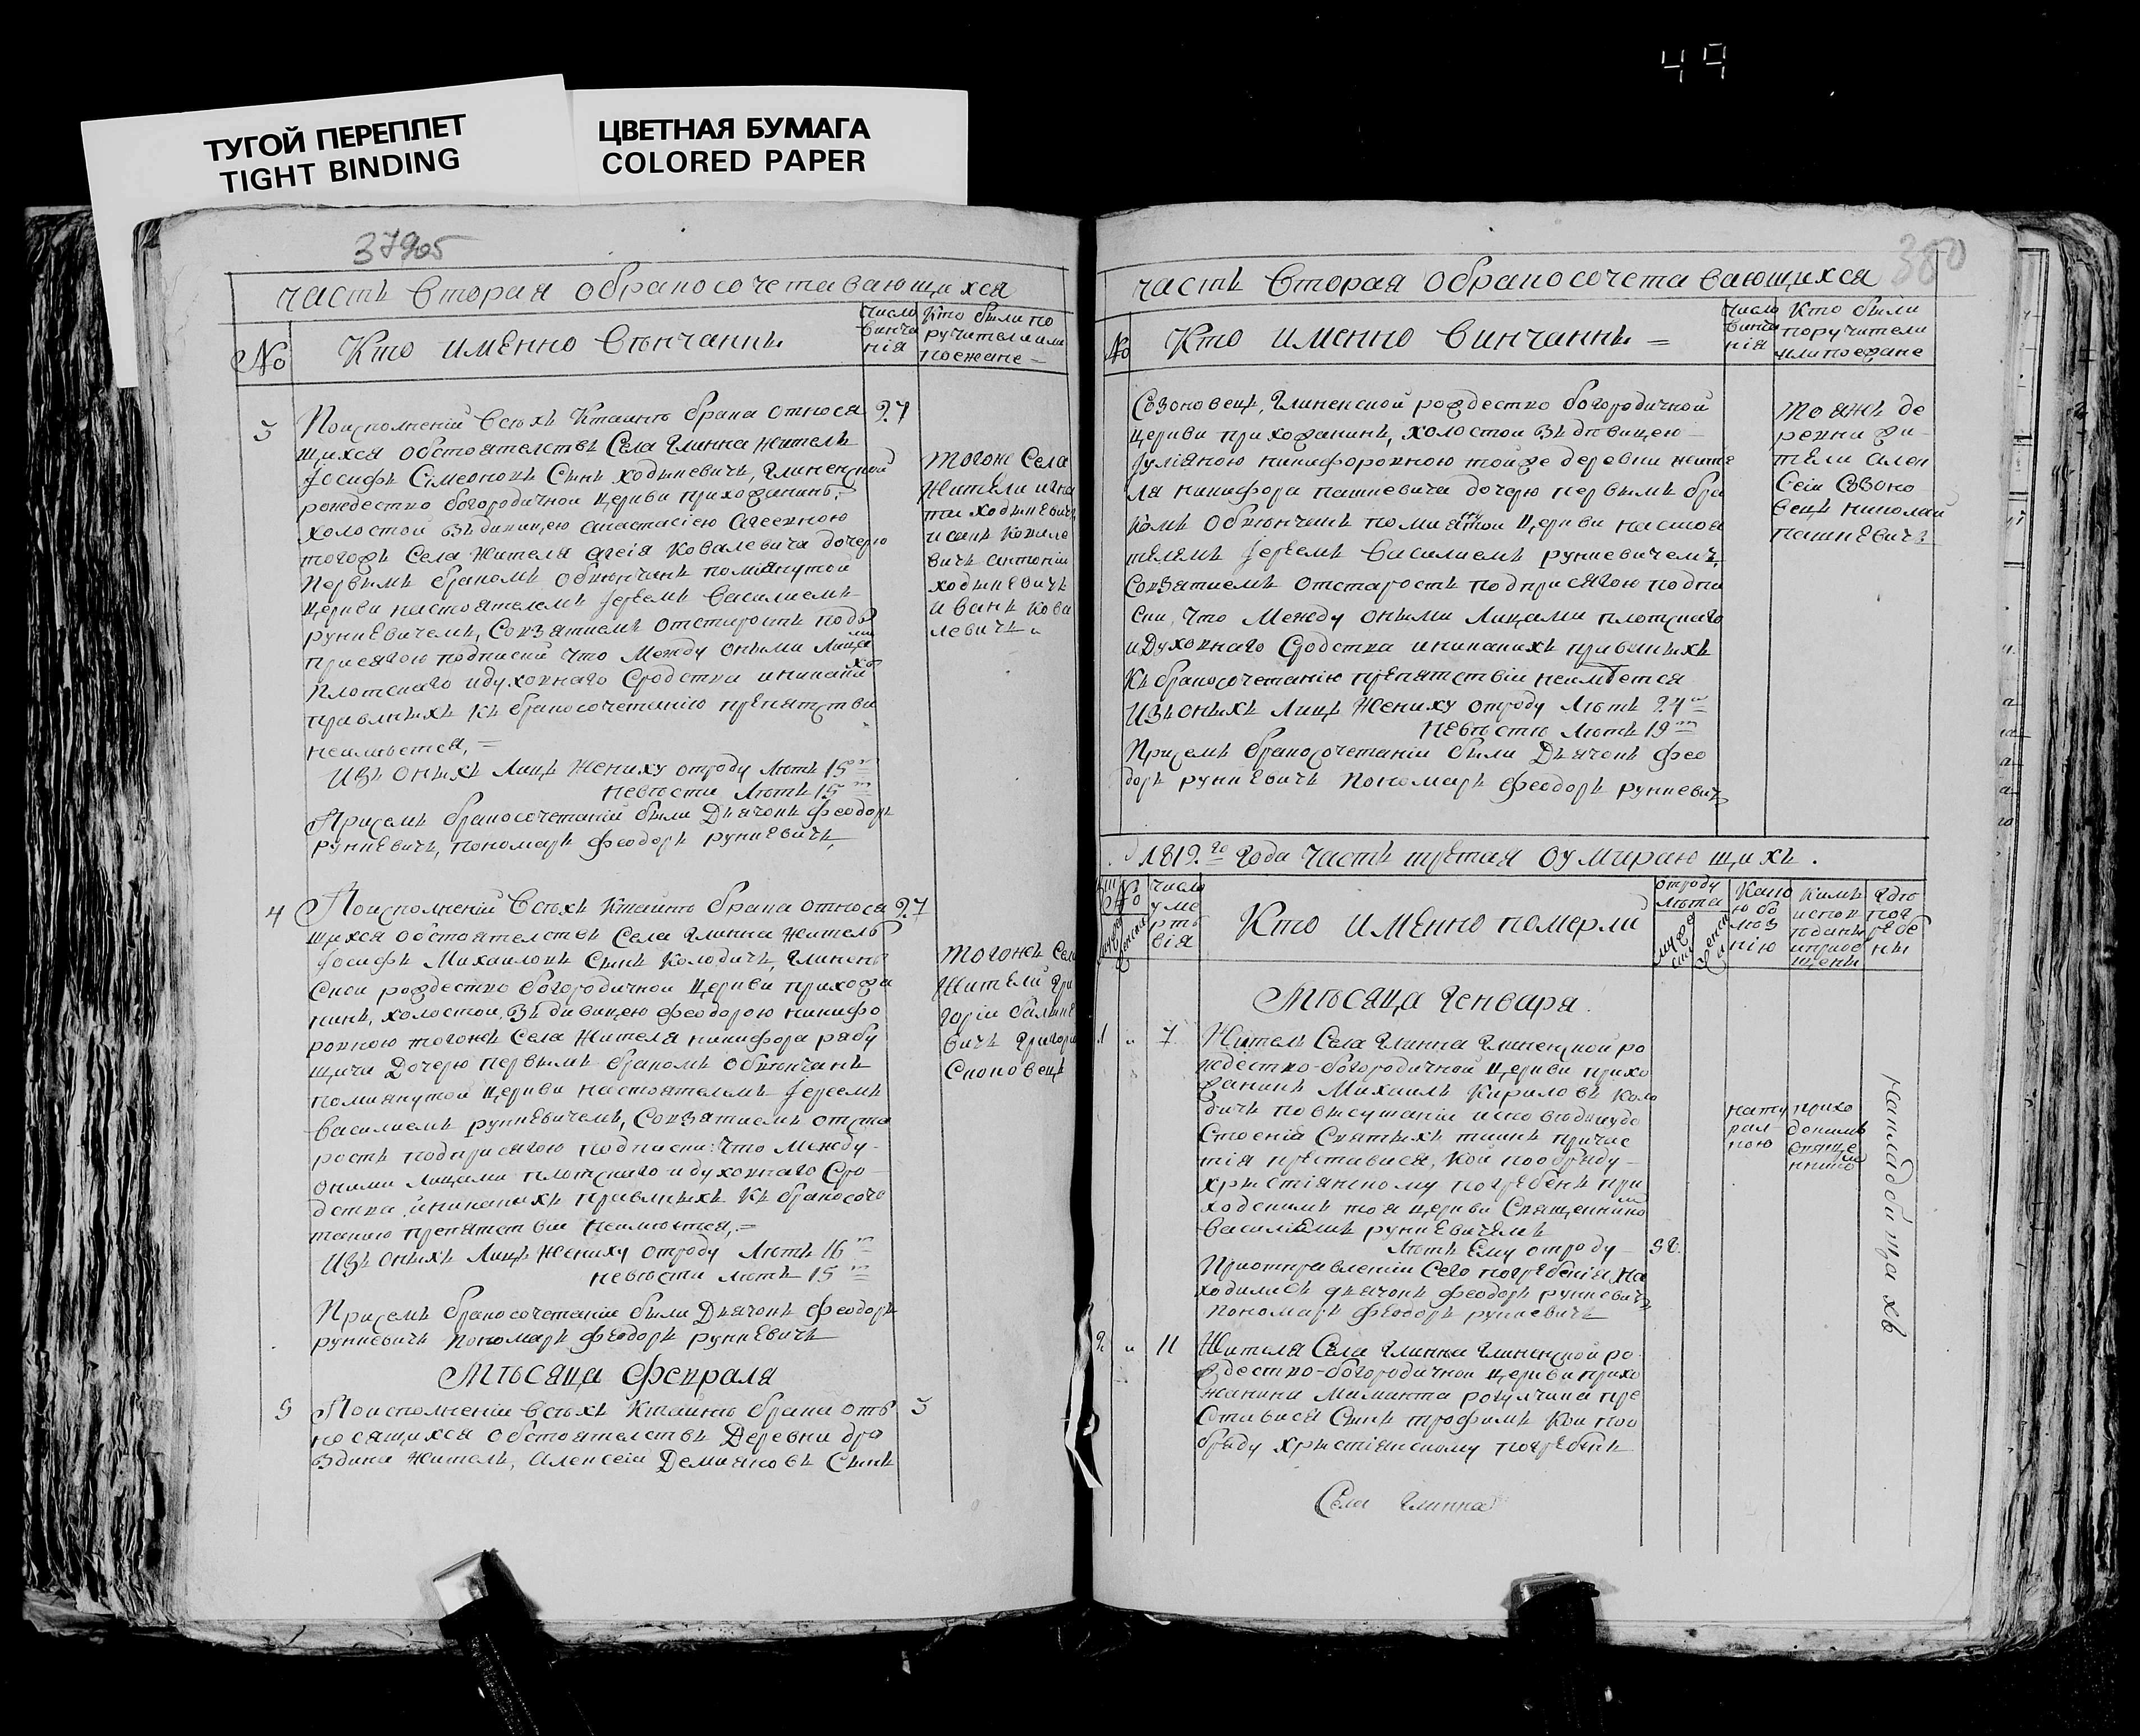 44
ТУГОЙ ПЕРЕПЛЕТ
TIGHT BINDING
ЦВЕТНАЯ БУМАГА
COLORED PAPER
часть вторая обракосочетавающихся
No
Кто именно вѣнчанны
число
винча
нія
Кто были по
ручители или
поезжане =
3
Поисполненіи всѣхъ ктаинѣ брака относя
27
щихся обстоятелствъ Села Глинна житель
Іосифъ Сімеоновъ Сынъ ходыневичъ, Глиненской
рождество богородичной церкви прихожанинъ,
холостой зъ дѣвицею анастасіею агеевною
тогожъ Села жителя агеія Ковалевича дочерю
первымъ бракомъ обвѣнчанъ помянутой
церкви настоятелемъ Іереемъ василіемъ
рункевичемъ, Совзятіемъ отстаростъ подъ
присягою подписки что между оными лица
ми
плотскаго идуховнаго сродства иникаки
хъ
правлныхъ къ бракосочетанію препятстви
неимѣется, =
Изъ оныхъ лицъ жениху отроду лѣтъ 15
невѣсти лѣтъ 15
Присемъ бракосочетаніи были Дьячокъ феодоръ
рункевичъ, пономарь феодоръ рункевичъ,
тогоже Села
жители игна
тій ходыневичъ
исакъ ковале
вичъ антоній
ходыневичъ
иванъ кова
левичъ
4
Поисполненіи всѣхъ ктаинѣ брака относя
27
щихся обстоятелствъ Села Глинна житель
Іосифъ Михаиловъ Сынъ Колодичъ, Глинен
ской рождество богородичной церкви прихожа
нинъ, холостой, зъ дѣвицею феодорою никифо
ровною тогожъ Села жителя никифора рабу
щича дочерю первымъ бракомъ обвѣнчанъ
помянутой церкви настоятелемъ Іереемъ
василіемъ рункевичемъ, Совзятіемъ отста
ростъ подприсягою подписки: что между
оными лицами плотскаго идуховнаго Сро
дства иникакихъ правлныхъ къ бракосоче
танію препятствіи неимѣется, =
Изъ оныхъ лицъ жениху отроду лѣтъ 16
невѣсти лѣтъ 15
Присемъ бракосочетаніи были Дьячокъ феодоръ
рункевичъ пономарь феодоръ рункевичъ
тогожъ Села
жители Гри
горій
вичъ григори
Споповецъ
Мѣсяца февраля
5
Поисполненіи всѣхъ ктаинѣ брака отъ
3
носящихся обстоятелствъ Деревни дро
здина житель, Алексеій Демияновъ Сынъ
380
часть вторая обракосочетавающихся
No
Кто именно винчанны =
число
винча
нія
Кто были
поручители
или поежане
Созоновецъ, Глиненской рождество богородичной
церкви прихожанинъ, холостой зъ дѣвицею
Іуліяною никифоровною тойже деревни жите
ля никифора пашкевича дочерю первымъ бра
комъ обвѣнчанъ помянутой церкви настоя
телемъ Іереемъ василіемъ рункевичемъ,
Совзятіемъ отстаростъ подприсягою подпи
ски, что между оными лицами плотскаго
идуховнаго сродства иникакихъ правлныхъ
къ бракосочетанію препятствіи неимѣется
Изъ оныхъ лицъ жениху отроду лѣтъ 24
невѣстѣ лѣтъ 19
Присемъ бракосочетаніи были Дьячокъ фео
доръ рункевичъ пономарь феодоръ рункевичъ
тояжъ де
ревни жи
тели алек
сеій Созоно
вецъ николай
пашкевичъ
1819.го Года часть третая оумирающихъ.
No
число
уме
ртъ
вія
Кто именно померли
отроду
лѣта
Како
ю бо
лѣз
нію
кимъ
испов
еданы
иприоб
щены
Гдѣ
пог
ребе
ны
Мѣсяца Генваря.
1
7
Житель Села Глинна Глиненской ро
ждество-богородичной церкви прихо
жанинъ Михаилъ Кириловъ Коло
дичъ повислушаніи исповѣди иудо
стоеніи Святыхъ таинъ причас
тія преставися, Кой пообряду
христіянскому погребенъ при
ходскимъ тоя церкви Священнико
мъ
василіемъ рункевичемъ
лѣтъ Ему отроду
Приотправленіи сего погребенія На
ходились дьячокъ феодоръ рункевичъ
пономарь феодоръ рункевичъ
нату
рал
ною
прихо
дскимъ
свяще
нникомъ
на кладбища хъ
2
11
Жителя Села Глинна Глиненской ро
ждество-богородичной церкви прихо
жанина Маманта пре
ставися Сынъ трофимъ Кой поо
бряду христіянскому погребенъ
Села Глинна